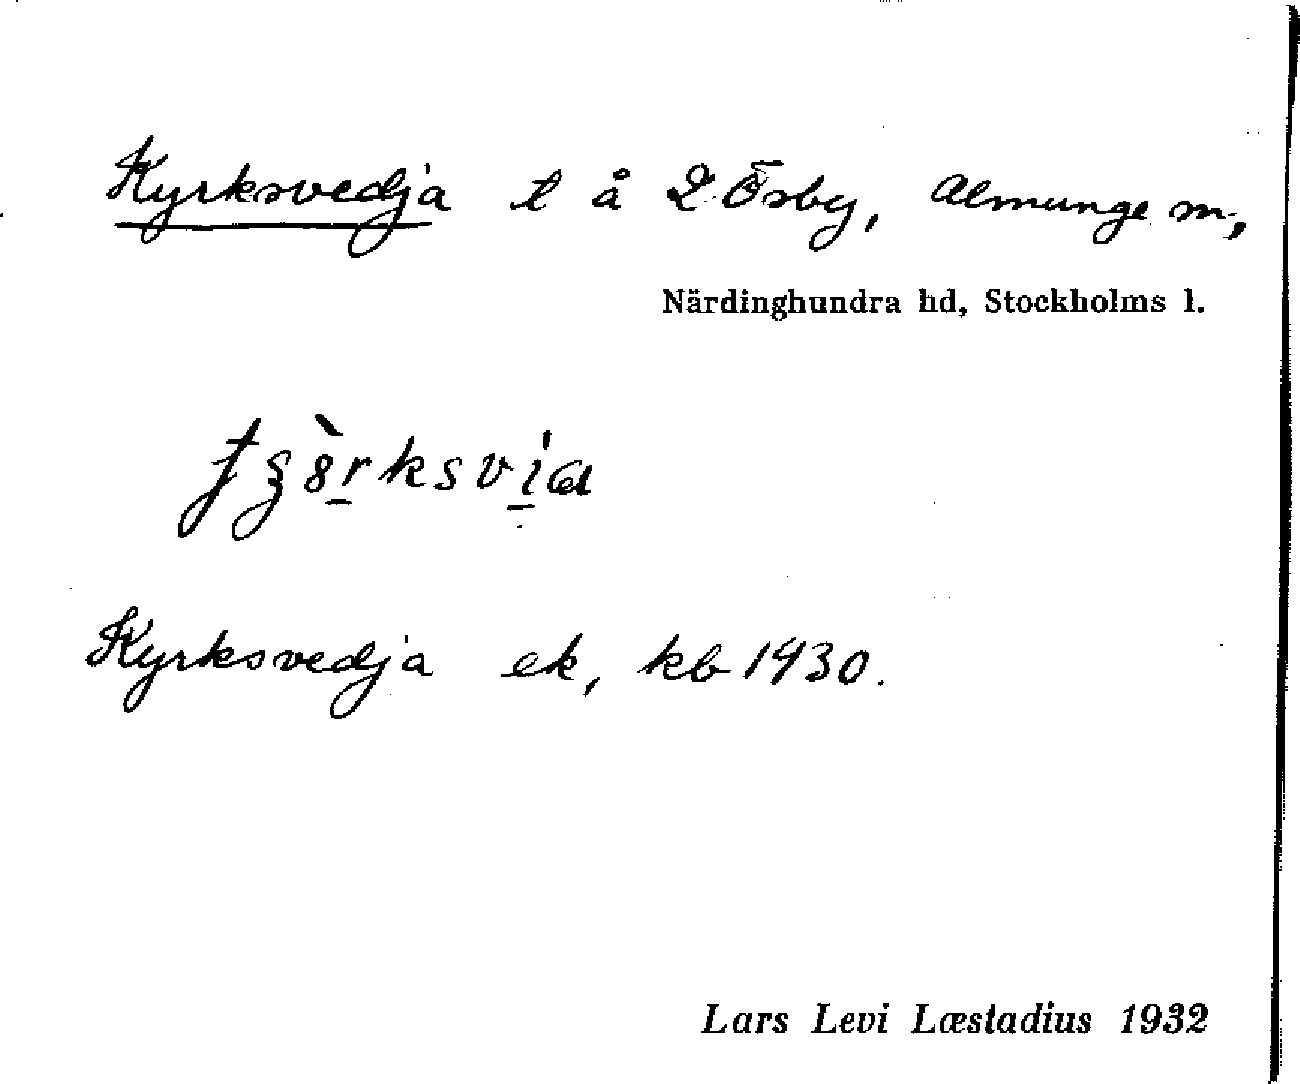 Kyrksvedja t å 2 Ösby, Almunge sn,
Närdinghundra hd, Stockholms l.
Kyrksvedja ek, kb 1930.
Lars Levi Læstadius 1932